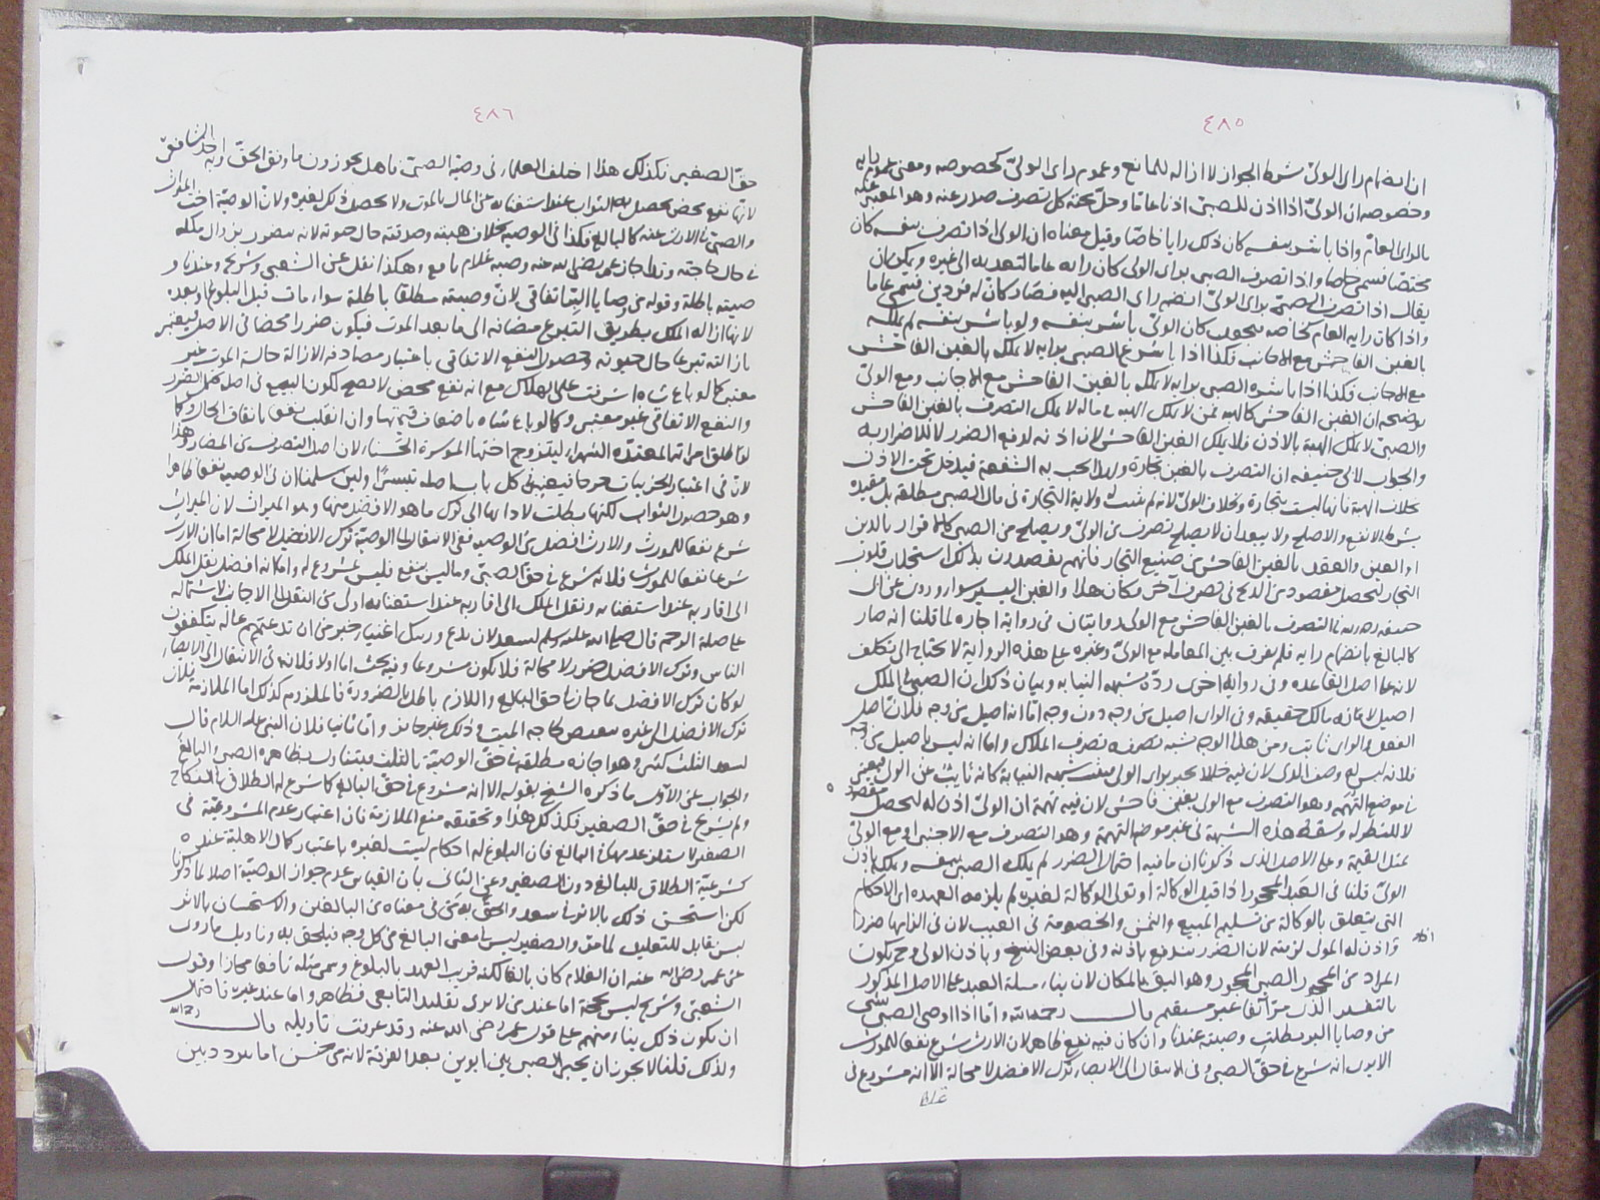 ٤٨٥
ان انضمام راى الولى شرط الجواز لا ازالة للمانع وعموم راى الولى كخصوصه ومعنى عموم رايه
وخصوصه ان الولى اذا اذن للصبى اذنا عاما وحل صحة كل تصرف صدر عنه وهو المعتبر عنه
بالراى العام واذا باشر بنفسه كان ذلك رايا خاصا وقيل معناه ان الولى اذا تصرف بنفسه كان
مختصا فسمى خاصا واذا تصرف الصبى براى الولى كان رايه عاما لتعديه الى غيره ويمكن ان
يقال اذا تصرف الصبى براى الولى انضم راى الصبى اليه فصار كان له فردين فسمى عاما
واذا كان رايه العام كخاصه كان الولى باشر بنفسه ولو باشر بنفسه لم يملكه
بالغبن الفاحش مع الاجانب فكذا اذا باشر الصبى برايه لا يملك بالغبن الفاحش
مع الاجانب فكذا اذا باشره الصبى برايه لا يملك بالغبن الفاحش مع الاجانب ومع الولى
يوضحه ان الغبن الفاحش كالهبة فمن لا يملك الهبة فى ماله لا يملك التصرف بالغبن الفاحش
والصبى لا يملك الهبة بالاذن فلا يملك الغبن الفاحش لان اذنه لدفع الضرر لا للاضرار به
والجواب لابى حنيفة ان التصرف بالغبن تجارة ولهذا يجب به الشفعة فيدخل تحت الاذن
بخلاف الهبة فانها ليست بتجارة وبخلاف الولى لانه لم يثبت له ولاية التجارة فى مال الصبى مطلقة بل مقيدة
بشرط الانفع والاصلح ولا يبعد ان لا يصلح تصرف من الولى ويصلح من الصبى كالاقرار بالدين
او العين والعقد بالغبن الفاحش من صنيع التجار فانهم يقصدون بذلك استجلاب قلوب
التجار لتحصل مقصودهم من الربح فى تصرف اخر فكان هذا والغبن اليسير سواء وروى عن ابى
حنيفة رحمه الله فى التصرف بالغبن الفاحش مع الولى روايتان فى رواية اجازه لما قلنا انه صار
كالبالغ بانضمام رايه فلم يفرق بين المعاملة مع الولى وغيره على هذه الرواية لا يحتاج الى تكلف
لانه على اصل القاعدة وفى رواية اخرى رده بشبهة النيابة وبيان ذلك ان الصبى فى الملك
اصيل لانه مالك حقيقة وفى الراى اصيل من وجه دون وجه اما انه اصيل من وجه فلان اصل
العقل والراى ثابت ومن هذا الوجه شبه تصرفه تصرف الملاك واما انه ليس باصيل من وجه
فلانه ليس له وصف الراى لان فيه خللا يجبر براى الولى فيثبت شبهة النيابة كانه نايب عن الولى فيعتبر
فى موضع التهمة وهو التصرف مع الولى بغبن فاحش لان فيه تهمة ان الولى اذن له لتحصل مقصوده
لا للنظر له وسقطت هذه الشبهة فى غير موضع التهمة وهو التصرف مع الاجنبى او مع الولى
بمثل القيمة وعلى الاصل الذى ذكرنا ان ما فيه احتمال الضرر لم يملك الصبى بنفسه ويملك باذن
الولى قلنا فى العبد المحجور اذا قبل الوكالة او تولى الوكالة لغيره لم يلزمه العهدة اى الاحكام
التى يتعلق بالوكالة من تسليم المبيع والثمن والخصومة فى العيب لان فى الزامها ضررا
واذن له المولى لزمته لان الضرر يندفع باذنه وفى بعض النسخ وباذن الولى وح يكون
المراد من المحجور الصبى المحجور وهو اليق بالمكان لان بناء مسئلة العبد على الاصل المذكور
بالتفسير الذى مر آنفا غير مستقيم قال رحمه الله واما اذا اوصى الصبى بشى
من وصايا البر بطلت وصيته عندنا وان كان فيه نفع ظاهر لان الارث شرع نفعا للمورث
الا يرى انه شرع فى حق الصبى وفى الانتقال الى الايصاء ترك الافضل لا محالة الا انه مشروع فى
٤٨٦
حق الصغير فكذلك هذا اختلف العلماء فى وصية الصبى فاهل يجوزون ما وافق الحق وبه اخذ الشافعى
لانها نفع محض يحصل به الثواب عند استغنائه عن المال بالموت ولا يحصل ذلك لغيره ولان الوصية اخت الميراث
والصبى فى الارث عنه كالبالغ فكذا فى الوصية بخلاف هبته وصدقته حال حيوته لانه يتضرر بزوال ملكه
فى حال حاجته وقد اجاز عمر رضى الله عنه وصية غلام يافع وهكذا نقل عن الشعبى وشريح وعندنا
وصيته باطلة وقوله من وصايا البر اتفاقى لان وصيته مطلقا باطلة سواء مات قبل البلوغ او بعده
لانها ازالة الملك بطريق التبرع مضافة الى ما بعد الموت فيكون ضررا محضا فى الاصل فيعتبر
بازالته تبرعا حال حيوته وحصول النفع الاتفاقى باعتبار مصادفة الازالة حالة الموت غير
معتبر كما لو باع شاة اشرفت على الهلاك مع انه نفع محض لا يصح لكون البيع فى اصله محتمل الضرر
والنفع الاتفاقى غير معتبر وكما لو باع شاة باضعاف قيمتها وان انقلب نفعا باتفاق الحال وكما
لو طلق امراته المعتدة الشوهاء ليتزوج اختها الموسرة الحسناء لان اصل التصرف من المضار وهذا
لان فى اعتبار الجزئيات حرجا فيعتبر فى كل باب اصله تيسيرا ولئن سلمنا ان فى الوصية نفعا ظاهرا
وهو حصول الثواب لكنها بطلت لادائها الى ترك ما هو الافضل منها وهو الميراث لان الميراث
شرع نفعا للمورث والارث افضل من الوصية ففى الانتقال الى الوصية ترك الافضل لا محالة اما ان الارث
شرعا نفعا للمورث فلانه شرع فى حق الصبى وما ليس بنفع فليس بمشروع له واما انه افضل نقل الملك
الى اقاربه عند استغنائه ونقل الملك الى اقاربه عند استغنائه اولى من النقل الى الاجانب لاشتماله
على صلة الرحم قال صلى الله عليه وسلم لسعد لان تدع ورثتك اغنياء خير من ان تدعهم عالة يتكففون
الناس وترك الافضل ضرر لا محالة فلا يكون مشروعا وفيه بحث اما اولا فلانه فى الانتقال الى الايصاء
لو كان ترك الافضل لما جاز فى حق البالغ واللازم باطل بالضرورة فالملزوم كذلك اما الملازمة فلان
ترك الافضل الى غيره كحاجة الميت وذلك غير جائز واما ثانيا فلان النبى عليه السلام قال
لسعد الثلث كثير وهو اجازة مطلقة فى حق الوصية بالثلث فيتناول بظاهره الصبى والبالغ
والجواب عن الاول ما ذكره الشيخ بقوله الا انه مشروع فى حق البالغ كما شرع له الطلاق والنكاح
ولم يشرع فى حق الصغير فكذلك هذا وتحقيقه منع الملازمة فان اعتبار عدم المشروعية فى
الصغير لا يستلزم عدمها فى البالغ فان البلوغ له احكام ليست لغيره باعتبار كمال الاهلية عنده
كشرعية الطلاق للبالغ دون الصغير وعن الثانى بان القياس عدم جواز الوصية اصلا لما ذكرنا
لكن استحسن ذلك بالاثر فى سعد والحق به من فى معناه من البالغين والاستحسان بالاثر
ليس بقابل للتعليل لما مر والصغير ليس فى معنى البالغ من كل وجه فيلحق به وتاويل ما روى
عن عمر رضى الله عنه ان الغلام كان بالغا لكنه قريب العهد بالبلوغ وسمى مثله يافعا مجازا وقول
الشعبى وشريح ليس بحجة اما عند من لا يرى تقليد التابعى فظاهر واما عند غيره فاحتمال
ان يكون ذلك بناء منهم على قول عمر رضى الله عنه وقد عرفت تاويله قال رحمه الله
ولذلك قلنا لا يجوز ان يخير الصبى بين ابوين بعد الفرقة لانه من جنس اما يتردد بين